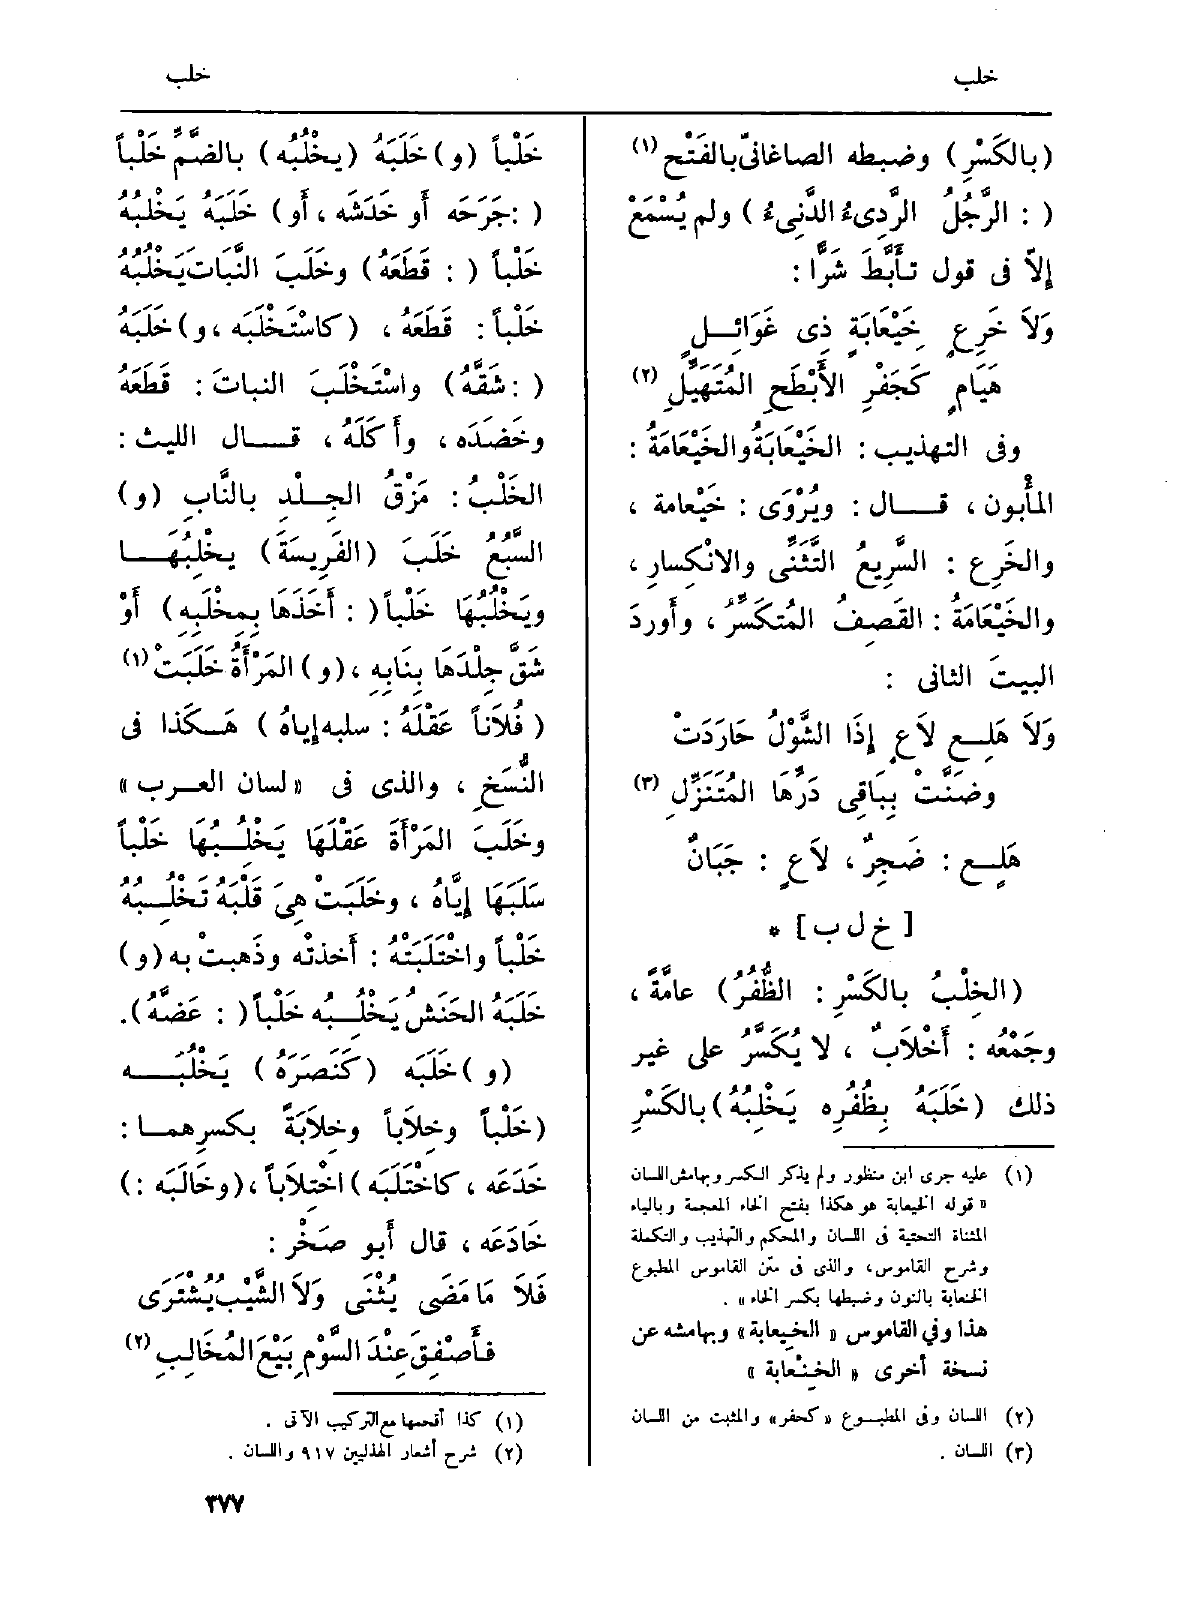 خلب
خلب
(بالكَسْرِ) وضبطه الصاغانىّ بالفَتْح (١)
( : الرَّجُلُ الرَّدِىءُ الدَّنِىءُ) ولم يُسْمَعْ
إلاّ فى قول تأَبَّطَ شَرًّا :
وَلاَ خَرِعٍ خَيْعَابَةٍ ذِى غَوَائِـلٍ
هَيَامٍ كَجَفْرِ الأَبْطَحِ المُتَهَيِّلِ (٢)
وفى التهذيب : الخَيْعَابَةُ والخَيْعَامَةُ :
المأْبون ، قـال : ويُرْوَى : خَيْعامة ،
والخَرِع : السَّرِيعُ التَّثَنِّى والانْكِسارِ ،
والخَيْعَامَةُ : القَصِفُ المُتكَسِّرُ ، وأَوردَ
البيتَ الثانى :
وَلاَ هَلِـعٍ لاَعٍ إِذَا الشَّوْلُ حَارَدَتْ
وضَنَّتْ بِبَاقِى دَرِّهَا المُتَنَزِّلِ (٣)
هَلِـع : ضَجِرٌ ، لاَعٍ : جَبَانٌ
[ خ ل ب ] *
(الخِلْبُ بالكَسْرِ : الظُّفُرُ) عامَّةً ،
وجَمْعُه : أَخْلاَبٌ ، لا يُكَسَّرُ على غير
ذلك (خَلَبَهُ بِظُفُرِه يَخْلِبُهُ) بالكَسْرِ
(١) عليه جرى ابن منظور ولم يذكر الكسر وبهامش اللسان
« قوله الخيعابة هو هكذا بفتح الخاء المعجمة وبالياء
المثناة التحتية فى اللسان والمحكم والتهذيب والتكملة
وشرح القاموس ، والذى فى متن القاموس المطبوع
الخنعابة بالنون وضبطها بكسر الخاء » .
هذا وفي القاموس « الخِيعابة » وبهامشه عن
نسخة أخرى « الخِنْعابة »
(٢) اللسان وفى المطبـوع « كحفر » والمثبت من اللسان
(٣) اللسان .
خَلْباً (و) خَلَبَهُ (يخْلُبُه) بالضَّمِّ خَلْباً
( : جَرَحَه أَو خَدَشَه ، أَو) خَلَبَهُ يَخْلِبُهُ
خَلْباً ( : قَطَعَهُ) وخَلَبَ النَّبَاتَ يَخْلُبُهُ
خَلْباً : قَطَعَهُ ، (كاسْتَخْلَبَه ، و) خَلَبَهُ
( : شَقَّهُ) واسْتَخْلَبَ النباتَ : قَطَعَهُ
وخَضَدَه ، وأَكَلَهُ ، قـال الليث :
الخَلْبُ : مَزْقُ الجِـلْدِ بالنَّابِ (و)
السَّبُعُ خَلَبَ (الفَرِيسَةَ) يخْلِبُهَـا
ويَخْلُبُهَا خَلْباً ( : أَخَذَهَا بِمِخْلَبِهِ) أَوْ
شَقَّ جِلْدَهَا بِنَابِهِ ، (و) المَرْأَةُ خَلَبَتْ (١)
( فُلاَناً عَقْلَهُ : سلبه إيَّاهُ ) هَـكَذا فى
النُّسَخِ ، والذى فى « لسان العـرب »
وخَلَبَ المَرْأَةَ عَقْلَهَا يَخْلُـبُهَا خَلْباً
سَلَبَهَا إيَّاهُ ، وخَلَبَتْ هِىَ قَلْبَهُ تَخْلِـبُهُ
خَلْباً واخْتَلَبَتْهُ : أَخذتْه وذَهبتْ به (و)
خَلَبَهُ الحَنَشُ يَخْلُـبُه خَلْباً ( : عَضَّهُ).
(و) خَلَبَه (كَنَصَرَهُ) يَخْلُبُـه
(خَلْباً وخِلاَباً وخِلاَبَةً بكسرهمـا :
خَدَعَه ، كاخْتَلَبَه) اخْتِلاَباً ، (وخَالَبَه :)
خَادَعَه ، قال أَبو صَخْر :
فَلاَ مَا مَضَى يُثْنَى وَلاَ الشَّيْبُ يُشْتَرَى
فأَصْفِقَ عِنْدَ السَّوْمِ بَيْعَ المُخَالِبِ (٢)
(١) كذا أقحمها مع التركيب الآتى .
(٢) شرح أشعار الهذليين ٩١٧ واللسان .
٣٧٧